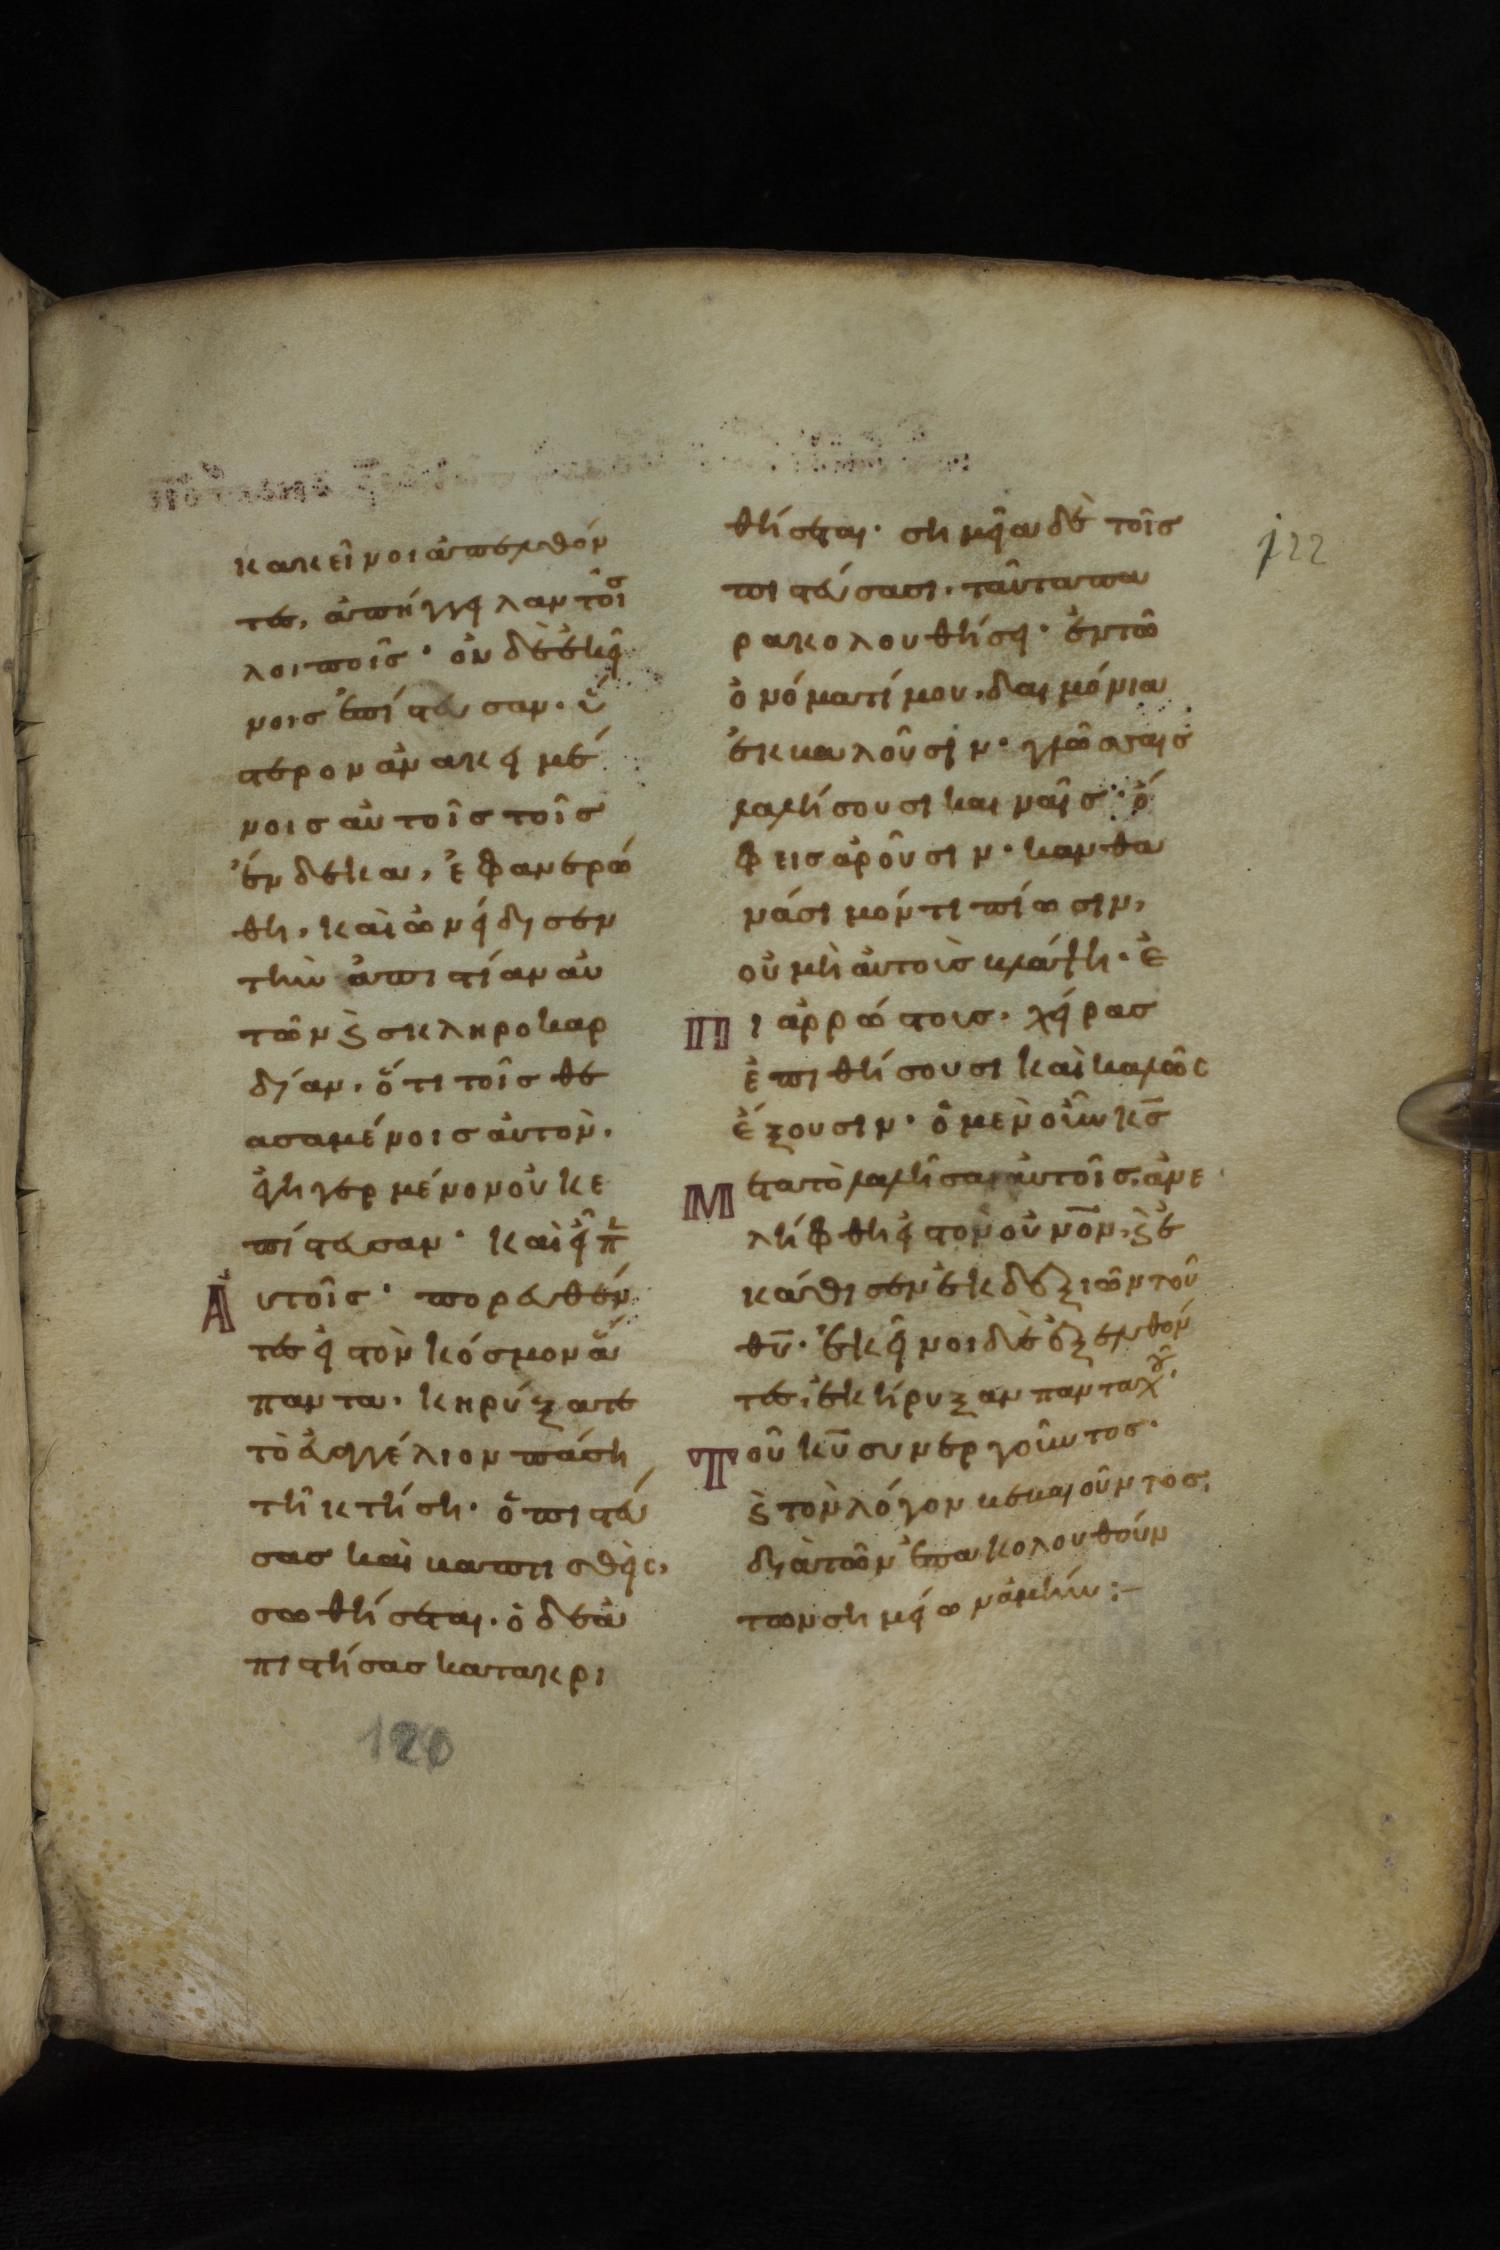 122
κακεῖνοι ἀπελθόν
τες, ἀπήγγειλαν τοῖσ
λοιποῖσ· οὐδὲ ἐκεί
νοισ ἐπίστευσαν· ὕ
στερον ἀνακειμέ
νοισ αὐτοῖσ τοῖσ
ἕνδεκα, ἐφανερώ
θη, καὶ ὠνείδισεν
τὴν ἀπιστίαν αὐ
τῶν ϗ σκληροκαρ
δίαν, ὅτι τοῖσ θε
ασαμένοισ αὐτὸν.
ἐγηγερμένον οὐκ ε
πίστευσαν· καὶ εἶπ
Αὐτοῖσ· πορευθέν
τεσ εἰσ τὸν κόσμον ἅ
παντα· κηρύξατε
τὸ εὐαγγέλιον πάση
τῆ κτήσει· ὁ πιστεύ
σασ καὶ βαπτισθεὶς,
σωθήσεται· ὁ δὲ ἀ
πιστήσασ κατακρι
θήσεται· σημεῖα δὲ τοῖσ
πιστεύσασι, ταῦτα πα
ρακολουθήσει· ἐν τῶ
ὀνόματί μου, δαιμόνια
ἐκβαλοῦσιν· γλώσσαισ
λαλήσουσι καιναῖσ· ὄ
φεισ ἀροῦσιν· κἂν θα
νάσιμόν τι πίωσιν,
οὐ μὴ αὐτοὺσ βλάψη· ἐ
Πὶ ἀρρώστουσ· χεῖρασ
ἐπιθήσουσι καὶ καλῶς
ἕξουσιν· ὁ μὲν οὖν κσ
Μετὰ τὸ λαλῆσαι αὐτοῖσ, ἀνε
λήφθη εἰσ τὸν οὐνον, ϗ ἐ
κάθισεν ἐκ δεξιῶν τοῦ
θυ· ἐκεῖνοι δὲ ἐξελθόν
τεσ, ἐκήρυξαν πανταχοῦ,
Τοῦ κυ συνεργοῦντοσ·
ϗ τὸν λόγον βεβαιοῦντοσ,
διὰ τῶν ἐπακολουθούν
των σημείων ἀμήν:–
120